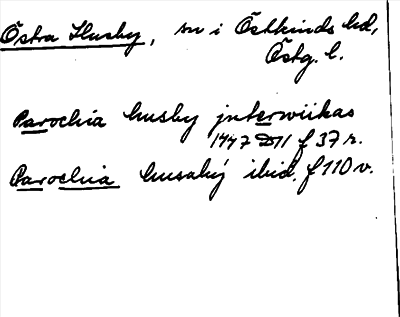 Östra Husby, sn i Östkinds hd,
Östg. l.
Parochia husby jnterwiikas
1447 D11 f 37 r.
Parochia husaby ibid. f 110 v.